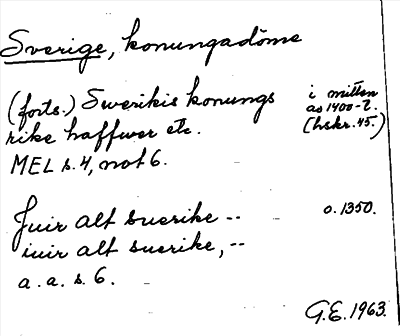 Sverige, konungadöme
(forts.) Swerikis konungs
rike haffwer etc.
MEL s. 4, not 6.
i mitten
av 1400-t.
(hskr. 45.)
Iuir alt suerike --
iuir alt suerike, --
a. a. s. 6.
o. 1350.
G.E. 1963.